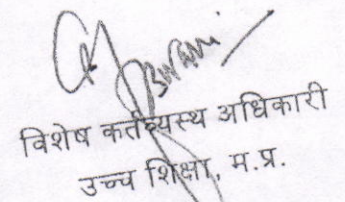 विशेष कर्तव्यस्थ अधिकारी
उच्च शिक्षा, म.प्र.